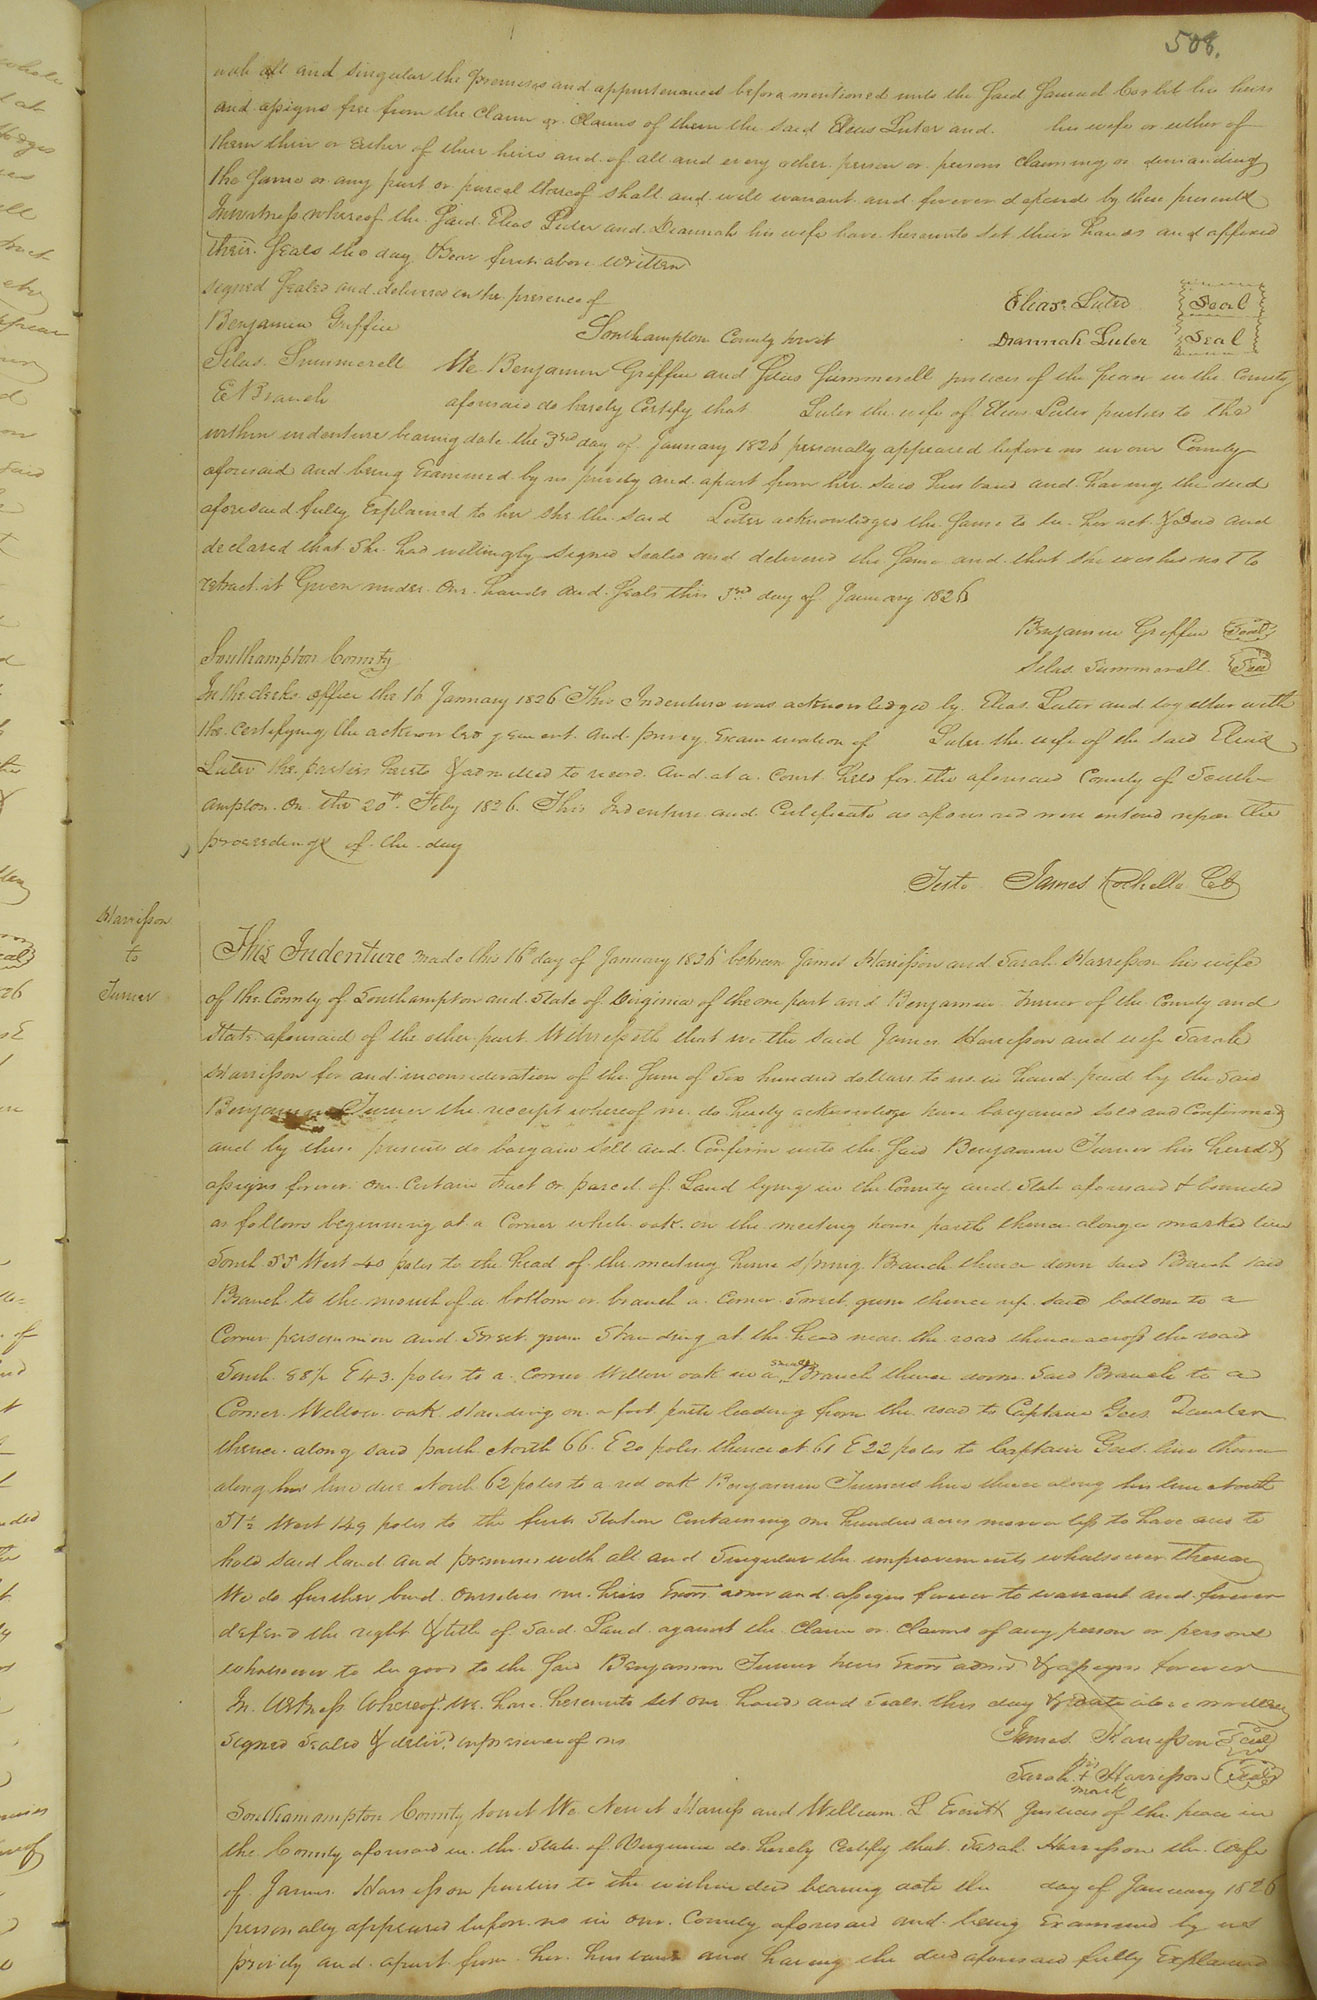 508.
with all and singular the premises and appurtenances before mentioned unto the Said Samuel Corbit his heirs
and assigns free from the claim or Claims of them the said Elias Luter and his wife or either of
them their or Either of their heirs and of all and every other person or persons claiming or demanding
the Same or any part or parcel thereof shall and will warrant and forever defend by these presents
In witness whereof the Said Elias Luter and Diannah his wife have hereunto set their hands and affixed
their Seals the day & year first above written
signed Sealed and delivered in the presence of
Elias Luter Seal
Benjamin Griffin
Southampton County towit
Diannah Luter Seal
Silas Summerell We Benjamin Griffin and Silas Summerell justices of the peace in the County
E Branch aforesaid do hereby Certify that Luter the wife of Elias Luter parties to the
within indenture bearing date the 3rd day of January 1826 personally appeared before us in our County
aforesaid and being Examined by us privily and apart from her said husband and having the deed
aforesaid fully Explained to her she the said Luter acknowledged the Same to be her act & deed and
declared that she had willingly signed sealed and delivered the Same and that she wishes not to
retract it Given under our hands and Seals this 3rd day of January 1826
Benjamin Griffin Seal
Southampton County
Silas Summerell Seal
In the clerks office the 16 January 1826 This Indenture was acknowledged by Elias Luter and together with
the certifying the acknowledgement and privy Examination of Luter the wife of the said Elias
Luter the parties hereto & admitted to record And at a Court held for the aforesaid County of South-
ampton on the 20th Feby 1826. This Indenture and Certificate as aforesaid were entered upon the
proceedings of the day
Teste James Rochelle Clk
Harrisson
to
Turner
This Indenture made this 16th day of January 1826 between James Harrisson and Sarah Harrisson his wife
of the County of Southampton and State of Virginia of the one part and Benjamin Turner of the County and
State aforesaid of the other part Witnesseth that we the said James Harrisson and wife Sarah
Harrisson for and in consideration of the Sum of Six hundred dollars to us in hand paid by the said
Benjamin Turner the receipt whereof we do hereby acknowledge have bargained sold and Confirmed
and by these presents do bargain sell and Confirm unto the Said Benjamin Turner his heirs &
assigns forever one Certain tract or parcel of Land lying in the County and State aforesaid & bounded
as follows beginning at a Corner white oak on the meeting house path thence along a marked line
South 55 West 40 poles to the head of the meeting house spring Branch thence down said Branch said
Branch to the mouth of a bottom or branch a Corner Sweet gum thence up said bottom to a
Corner persimmon and Sweet gum Standing at the head near the road thence across the road
South 88½ E 43 poles to a Corner Willow oak in a small Branch thence down Said Branch to a
Corner Willow oak standing on a foot path leading from the road to Captain Gees
thence along said path North 66 E 20 poles thence N 61 E 22 poles to Captain Gees line thence
along his line due North 62 poles to a red oak Benjamin Turners line thence along his line North
51½ West 149 poles to the first Station Containing one hundred acres more or less to have and to
hold said land and premises with all and Singular the improvements whatsoever thereon
We do further bind ourselves our heirs Exors admr and assigns forever to warrant and forever
defend the right & title of Said Land against the Claim or Claims of any person or persons
whatsoever to be good to the Said Benjamin Turner heirs Exors admrs & assigns forever
In Witness Whereof We have hereunto set our hands and seals this day & date above written
Signed Sealed & delivd in presence of us
James Harrisson Seal
Sarah + Harrisson Seal
his
mark
Southamampton County towit We Newit Harriss and William L Everitt Justices of the peace in
the County aforesaid in the State of Virginia do hereby Certify that Sarah Harrisson the Wife
of James Harrisson parties to the within deed bearing date the day of January 1826
personally appeared before us in our County aforesaid and being Examined by us
privily and apart from her husband and having the deed aforesaid fully Explained